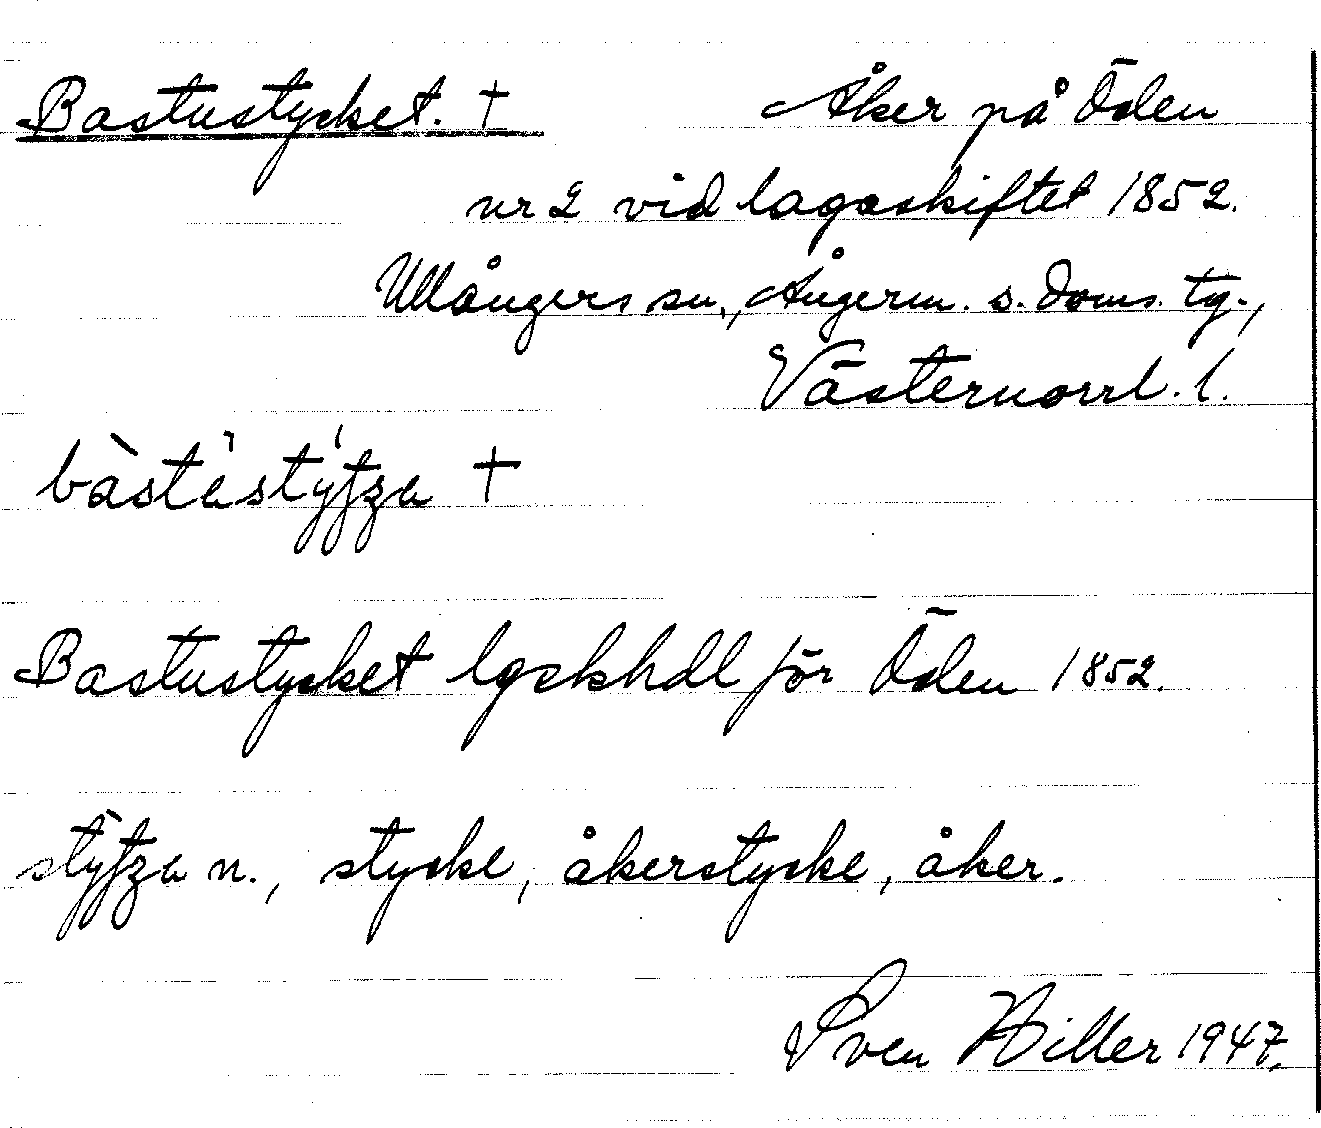 Bastustycket. † Åker på Öden
nr 2 vid lagaskiftet 1852.
Ullångers sn., Ångerm. s. doms. tg.,
Västernorrl. l.
bàstàstýʃza †
Bastustycket lgskhdl för Öden 1852.
stýʃza n., stycke, åkerstycke, åker.
Sven Hiller 1947.